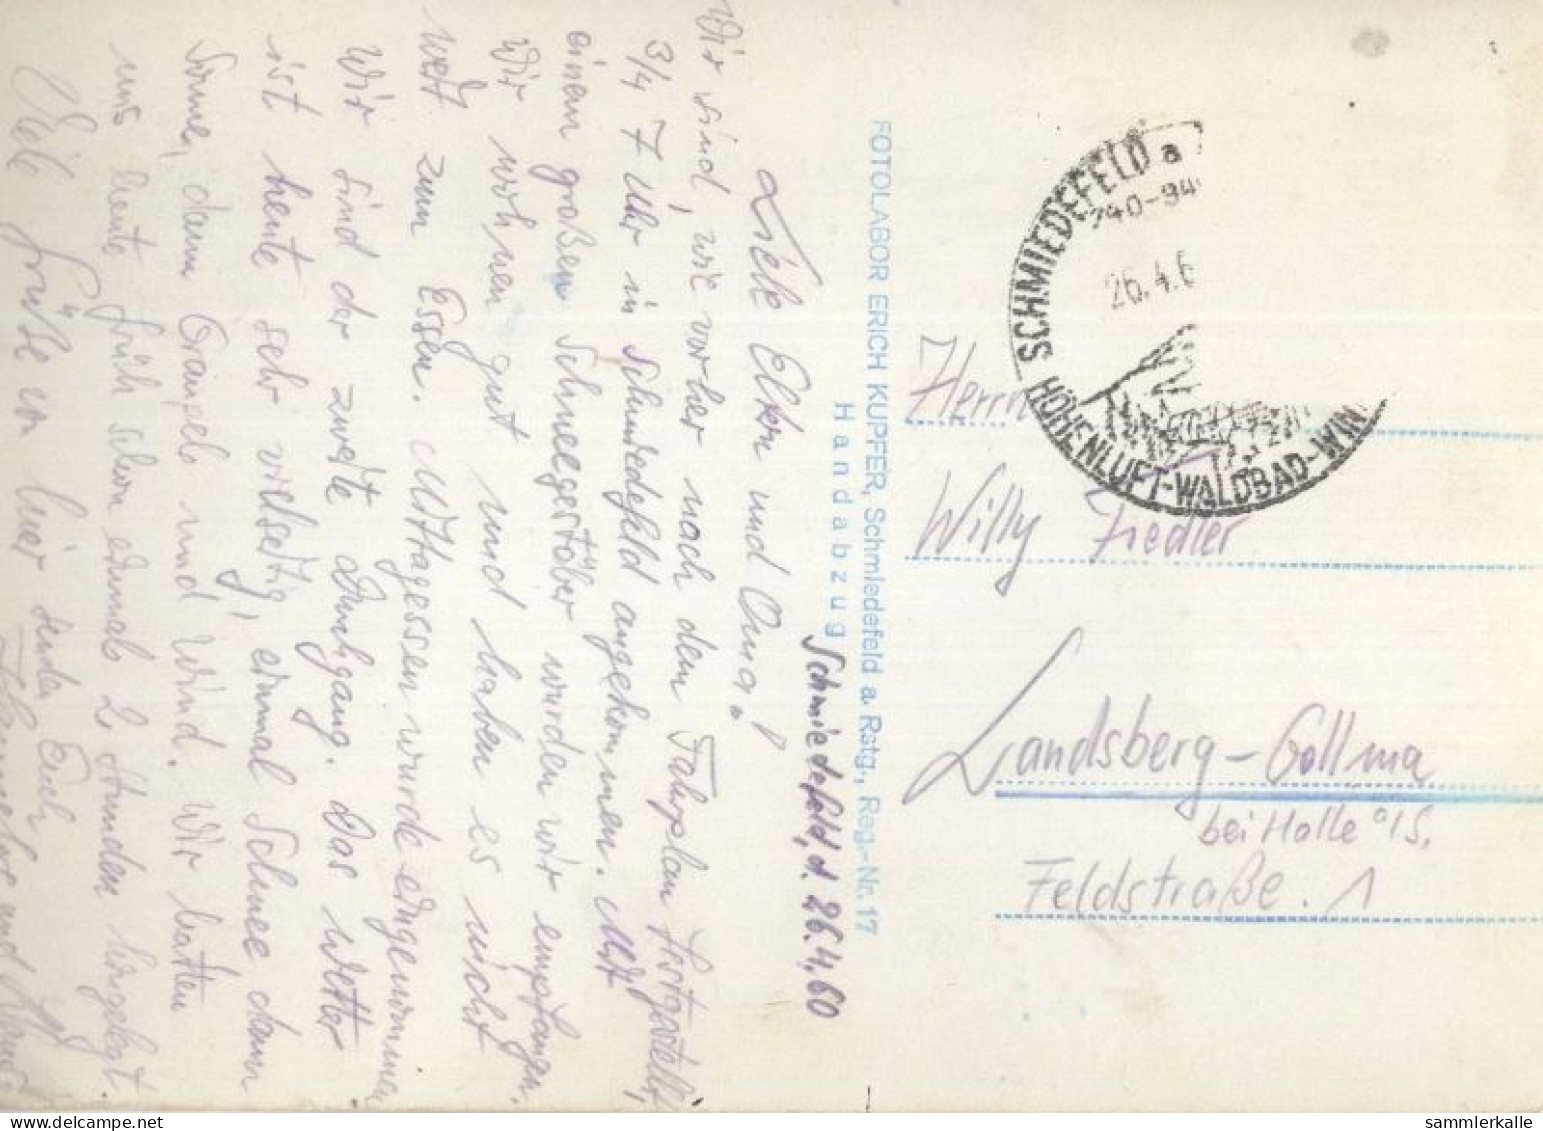 Schmiedefeld, d. 26.4.60
Liebe Eltern und Oma!
Wir sind, wie vorher nach dem Fahrplan festgestellt,
3/4 7 Uhr in Schmiedefeld angekommen. Mit
einem großen Schneegestöber wurden wir empfangen.
Wir wohnen gut und haben es nicht
weit zum Essen. Mittagessen wurde eingenommen
Wir sind der zweite Durchgang. Das Wetter
ist heute sehr vielseitig, einmal Schnee dann
Sonne, dann Graupeln und Wind. Wir hatten
uns heute früh schon einmal 2 Stunden hingelegt.
Viele Grüße von hier sendet Euch
Hannelore und
FOTOLABOR ERICH KUPFER, Schmiedefeld a. Rstg., Reg.-Nr. 17
Handabzug
SCHMIEDEFELD a
26.4.6
HÖHENLUFT-WALDBAD-WIN
Herrn
Willy Fiedler
Landsberg-Gollma
bei Halle a/S.
Feldstraße. 1
sammlerkalle